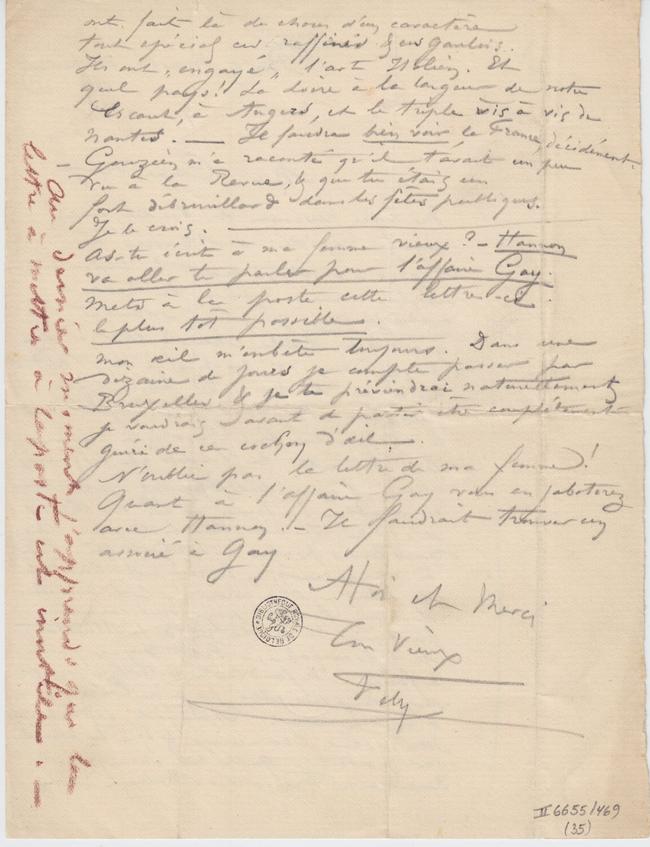 ont fait là de choses d'un caractère
tout spécial et raffinés & en gaulois.
Ils ont "engayé" l'art Italien. Et
quel pays! La Loire à la largeur de notre
Escaut, à Angers, et le triple vis à vis de
Nantes. — Il faudra bien voir la France, décidément.
— Gouzien m'a raconté qu'il t'avait un peu
vu à la Revue, & que tu étais un
fort débrouillard dans les fêtes publiques.
Je le crois. —
As-tu écrit à ma femme vieux? — Hannon
va aller te parler pour l'affaire Gay.
Mets à la poste cette lettre-ci
le plus tôt possible.
Mon œil m'embête toujours. Dans une
dizaine de jours je compte passer par
Bruxelles & je te préviendrai naturellement,
je voudrais avant de partir être complètement
guéri de ce cochon d'œil.
N'oublie pas la lettre de ma femme!
Quant à l'affaire Gay vous en jaboterez
avec Hannon. — Il faudrait trouver un
associé à Gay
A toi et Merci
Ton Vieux
Fély
Au dernier moment j'apprends que la
lettre à mettre à la poste est inutile. —
BIBLIOTHÈQUE ROYALE DE BELGIQUE
II 6655/469
(35)